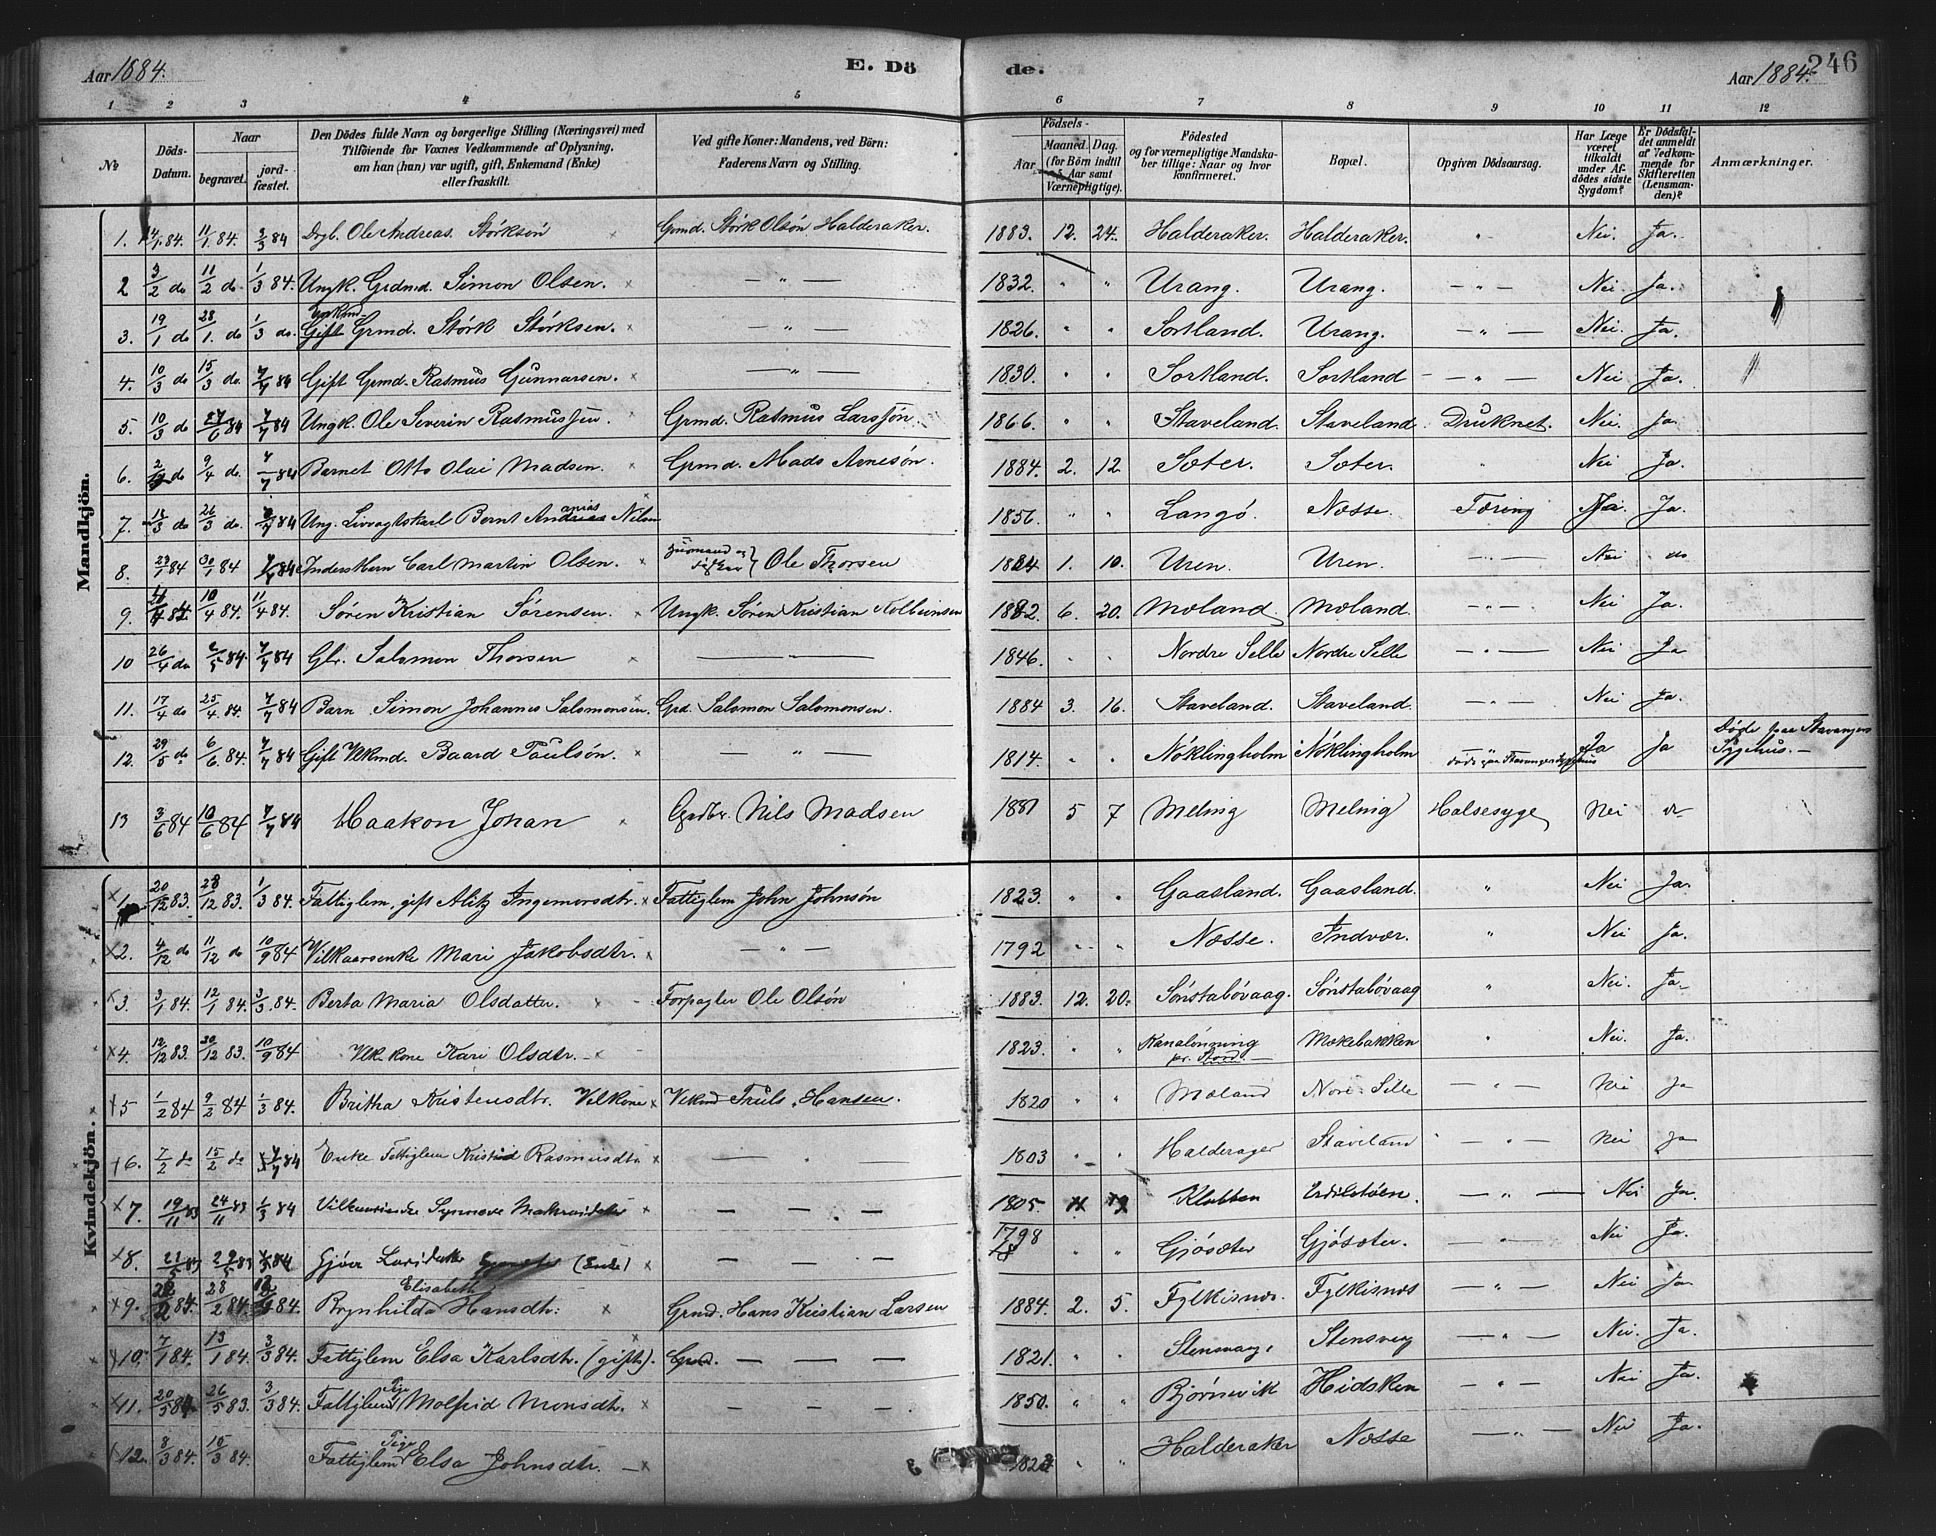 Aar 1884. E. Dö de. Aar 1884. 246
1 2 3 4 5 6 7 8 9 10 11 12
№ Döds-Datum. Naar begravet. jord-fæstet. Den Dödes fulde Navn og borgerlige Stilling (Næringsvei) med Tilföiende for Voxnes Vedkommende af Oplysning. om han (hun) var ugift, gift, Enkemand (Enke) eller fraskilt. Ved gifte Koner: Mandens, ved Börn: Faderens Navn og Stilling. Födsels- Aar Maaned. Dag. (for Börn indtil 5 Aar samt Værnepligtige). Födested og for værnepligtige Mandskaber tillige: Naar og hvor konfirmeret. Bopæl. Opgiven Dödsaarsag. Har Læge været tilkaldt under Afdödes sidste Sygdom? Er Dödsfaldet anmeldt af Vedkommende for Skifteretten (Lensmanden)? Anmærkninger.
Mandkjön.
1. 4/1 84. 11/1 84. 2/3 84 Drgb. Ole Andreas Störksön Grmd. Störk Olsön Halderaker. 1883. 12. 24. Halderaker. Halderaker. " Nei. Ja.
2 3/2 do 11/2 do 1/3 84. Ungk. Grdmd. Simon Olsen. — " — 1832. " " Urang. Urang. — " — Nei. Ja.
3. 19/1 do 28/1. do 1/3 do Enkmd. Gift Grmd. Störk Störksen. — " — 1826. " " Sortland. Urang. — " — Nei. Ja
4. 10/3 do 15/3 do. 7/7 84 Gift Grmd. Rasmus Gunnarsen. — " — 1830. " " Sortland. Sortland — " — Nei Ja.
5. 10/3 do 27/6 84 7/7 84 Ungk. Ole Severin Rasmussen Grmd. Rasmus Larssön. 1866. " " Staveland. Staveland. Druknet. Nei. Ja.
6. 2/ do 9/4 do. 7/7 84 Barnet Otto Olai Madsen. Grmd. Mads Arnesön. 1884. 2. 12. Sæter. Sæter. " Nei Ja.
7. 18/3 do 26/3 do. 7/7 84 Ung. Andreas anias Nilsen 1856. " " Langö. Næsse. Tæring Ja. Ja.
8. 23/1 84 30/1 84 7/7 84 Carl Martin Olsen. Ole Thorsen 1884. 1. 10. Uren. Uren. — " — Nei do
9. 10/4 84. 11/4 84. Sören Kristian Sörensen. Ungk. Sören Kristian Kolbeinsen 1882. 6. 20. Moland. Moland. — " — Nei Ja.
10 26/4 do 2/5 84. 7/7 84 Salomon Thorsen — " — 1846. " " Nordre Selle Nordre Selle — " — Nei Ja
11. 17/4 do 25/4 84. 7/7 84 Barn Simon Johannes Salomonsen. Grd. Salomon Salomonsen. 1884 3. 16. Staveland. Staveland. — " — Nei Ja.
12. 29/5 do 6/6 84. 7/7 84 Gift Vlkmd. Baard Paulsön. — " — 1814. " " Nöklingholm Nöklingholm döde paa Stavanger Sygehus Ja Ja Döde paa Stavanger Sygehus. —
13 3/6 84 10/6 84 7/7 84 Haakon Johan Grdbr. Nils Madsen 1881 5 7 Meling Meling Halsesyge Nei
Kvindekjön.
1. 20/12 83. 28/12 83. 1/3 84. Fattiglem, gift Alitz Ingemorsdtr. Fattiglem John Johnsön 1823. " " Gaasland. Gaasland. " Nei Ja.
2. 4/12 do 11/12 do 10/9 84 Vilkaarsenke Mari Jakobsdtr. — " — 1792 " " Næsse. Indvær. " Nei Ja.
3 3/1 84. 12/1 84. 3/3 84. Berta Maria Olsdatter. Forpagter Ole Olsön 1883. 12. 20. Sönstabövaag. Sönstabövaag " Nei. Ja.
4. 12/12 83. 30/12 83. 10/9 84 Vlk. kone Kari Olsdtr. 1823. " " pr. Stord Mækebakken " Nei. Ja.
5 1/2 84 9/2 84 1/3 84. Britha Kristensdtr. Vilkone Vlkmd Truls Hansen. 1820 " " Moland Nore Selle — " — Nei Ja
6. 7/2 do 15/2 do 7/7 84 Enke Fattiglem Kristid Rasmusdtr — " — 1803 " " Halderager Staveland — " — Nei Ja
7. 19/11 83 24/11 83 1/3 84 Synnøve — — — 1805. Klubben — " — Nei Ja.
8. 21/5 83 29/5 83 84 Gjöa (Enke) — — — 1798 " " Gjösæter Gjösæter. — " — Nei Ja.
9. 28/2 84. 84. Brynhilda Elisabeth Hansdtr. Grmd. Hans Kristian Larsen 1884. 2. 5. Fylkisnæs. Fylkisnæs — " — Nei Ja.
10. 7/1 84. 13/1 84. 3/3 84. Fattiglem Elsa Karlsdtr. (gift). Grmd. — — — 1821. " " Stensvag. Stensvag — " — Nei. Ja.
11. 20/5 26/5 83. 3/3 84. Fattiglem Pige Molfrid Monsdtr. — — — 1850. " " Björnevik Hidsken — " — Nei Ja.
12. 8/3 84. 15/3 84. Fattiglem Pige Elsa Johnsdtr. — " " Halderaker Næsse — " — Nei Ja.